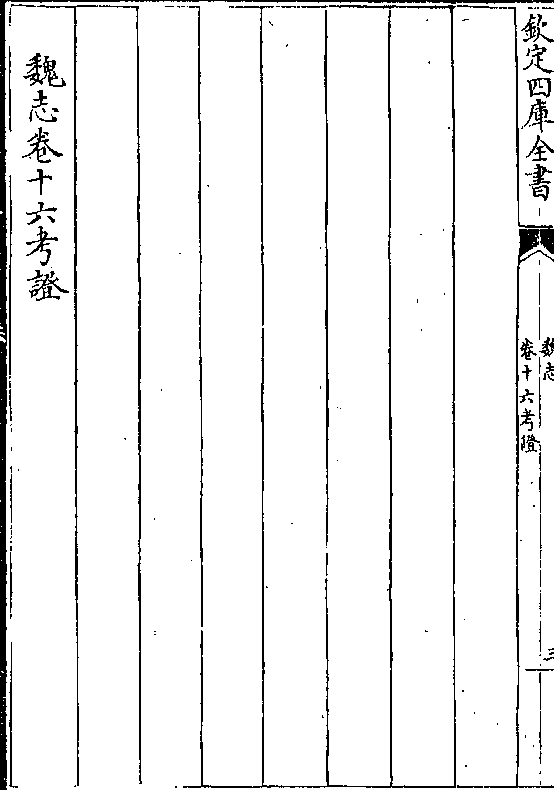 欽定四庫全書
魏志
卷十六考證
三
魏志卷十六考證